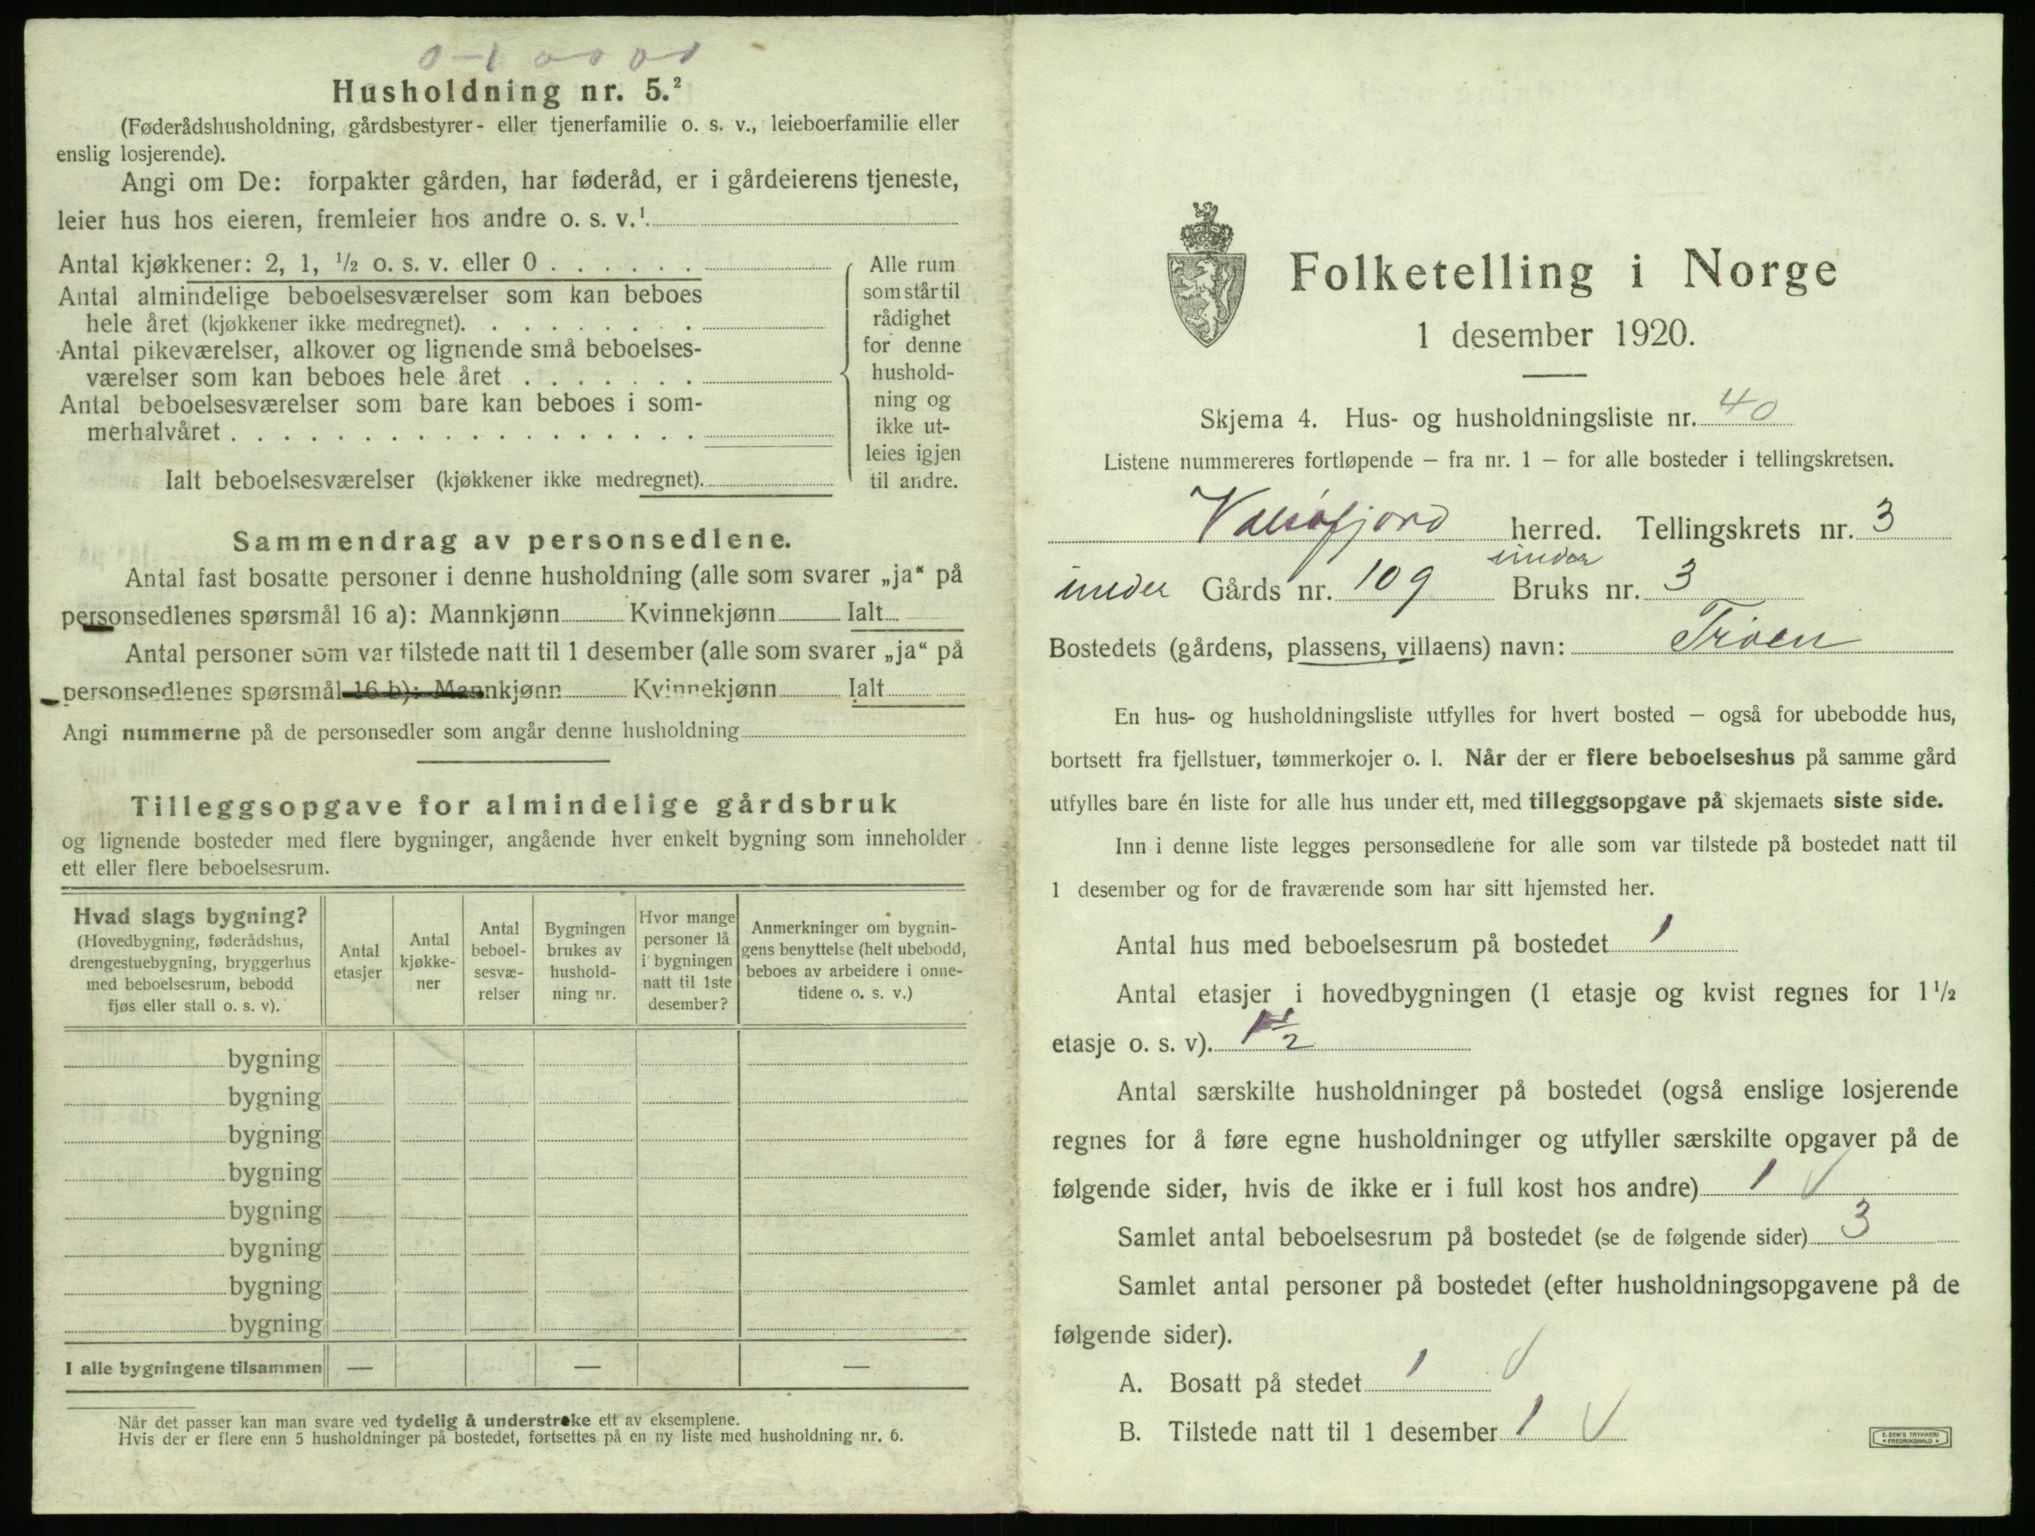 0-1 0-0 0-1
Husholdning nr. 5.²
(Føderådshusholdning, gårdsbestyrer- eller tjenerfamilie o. s. v., leieboerfamilie eller
enslig losjerende).
Angi om De: forpakter gården, har føderåd, er i gårdeierens tjeneste,
leier hus hos eieren, fremleier hos andre o. s. v.¹
Antal kjøkkener: 2, 1, ½ o. s. v. eller 0
Antal almindelige beboelsesværelser som kan beboes
hele året (kjøkkener ikke medregnet).
Antal pikeværelser, alkover og lignende små beboelses-
værelser som kan beboes hele året
Antal beboelsesværelser som bare kan beboes i som-
merhalvåret
Ialt beboelsesværelser (kjøkkener ikke medregnet).
Alle rum
som står til
rådighet
for denne
hushold-
ning og
ikke ut-
leies igjen
til andre.
Sammendrag av personsedlene.
Antal fast bosatte personer i denne husholdning (alle som svarer „ja“ på
personsedlenes spørsmål 16 a): Mannkjønn Kvinnekjønn Ialt
Antal personer som var tilstede natt til 1 desember (alle som svarer „ja“ på
personsedlenes spørsmål 16 b): Mannkjønn Kvinnekjønn Ialt
Angi nummerne på de personsedler som angår denne husholdning
Tilleggsopgave for almindelige gårdsbruk
og lignende bosteder med flere bygninger, angående hver enkelt bygning som inneholder
ett eller flere beboelsesrum.
Hvad slags bygning?
(Hovedbygning, føderådshus,
drengestuebygning, bryggerhus
med beboelsesrum, bebodd
fjøs eller stall o. s. v).
Antal
etasjer
Antal
kjøkke-
ner
Antal
beboel-
sesvæ-
relser
Bygningen
brukes av
hushold-
ning nr.
Hvor mange
personer lå
i bygningen
natt til 1ste
desember?
Anmerkninger om bygnin-
gens benyttelse (helt ubebodd,
beboes av arbeidere i onne-
tidene o. s. v.)
bygning
bygning
bygning
bygning
bygning
bygning
bygning
bygning
I alle bygningene tilsammen — — —
Når det passer kan man svare ved tydelig å understreke ett av eksemplene.
Hvis der er flere enn 5 husholdninger på bostedet, fortsettes på en ny liste med husholdning nr. 6.
Folketelling i Norge
1 desember 1920.
Skjema 4. Hus- og husholdningsliste nr. 40
Listene nummereres fortløpende – fra nr. 1 – for alle bosteder i tellingskretsen.
Valsøfjord herred. Tellingskrets nr. 3
under Gårds nr. 109 under Bruks nr. 3
Bostedets (gårdens, plassens, villaens) navn: Trøen
En hus- og husholdningsliste utfylles for hvert bosted – også for ubebodde hus,
bortsett fra fjellstuer, tømmerkojer o. l. Når der er flere beboelseshus på samme gård
utfylles bare én liste for alle hus under ett, med tilleggsopgave på skjemaets siste side.
Inn i denne liste legges personsedlene for alle som var tilstede på bostedet natt til
1 desember og for de fraværende som har sitt hjemsted her.
Antal hus med beboelsesrum på bostedet 1
Antal etasjer i hovedbygningen (1 etasje og kvist regnes for 1½
etasje o. s. v). 1½
Antal særskilte husholdninger på bostedet (også enslige losjerende
regnes for å føre egne husholdninger og utfyller særskilte opgaver på de
følgende sider, hvis de ikke er i full kost hos andre) 1
Samlet antal beboelsesrum på bostedet (se de følgende sider) 3
Samlet antal personer på bostedet (efter husholdningsopgavene på de
følgende sider).
A. Bosatt på stedet 1
B. Tilstede natt til 1 desember 1
E. SEM'S TRYKKERI
• FREDRIKSHALD •